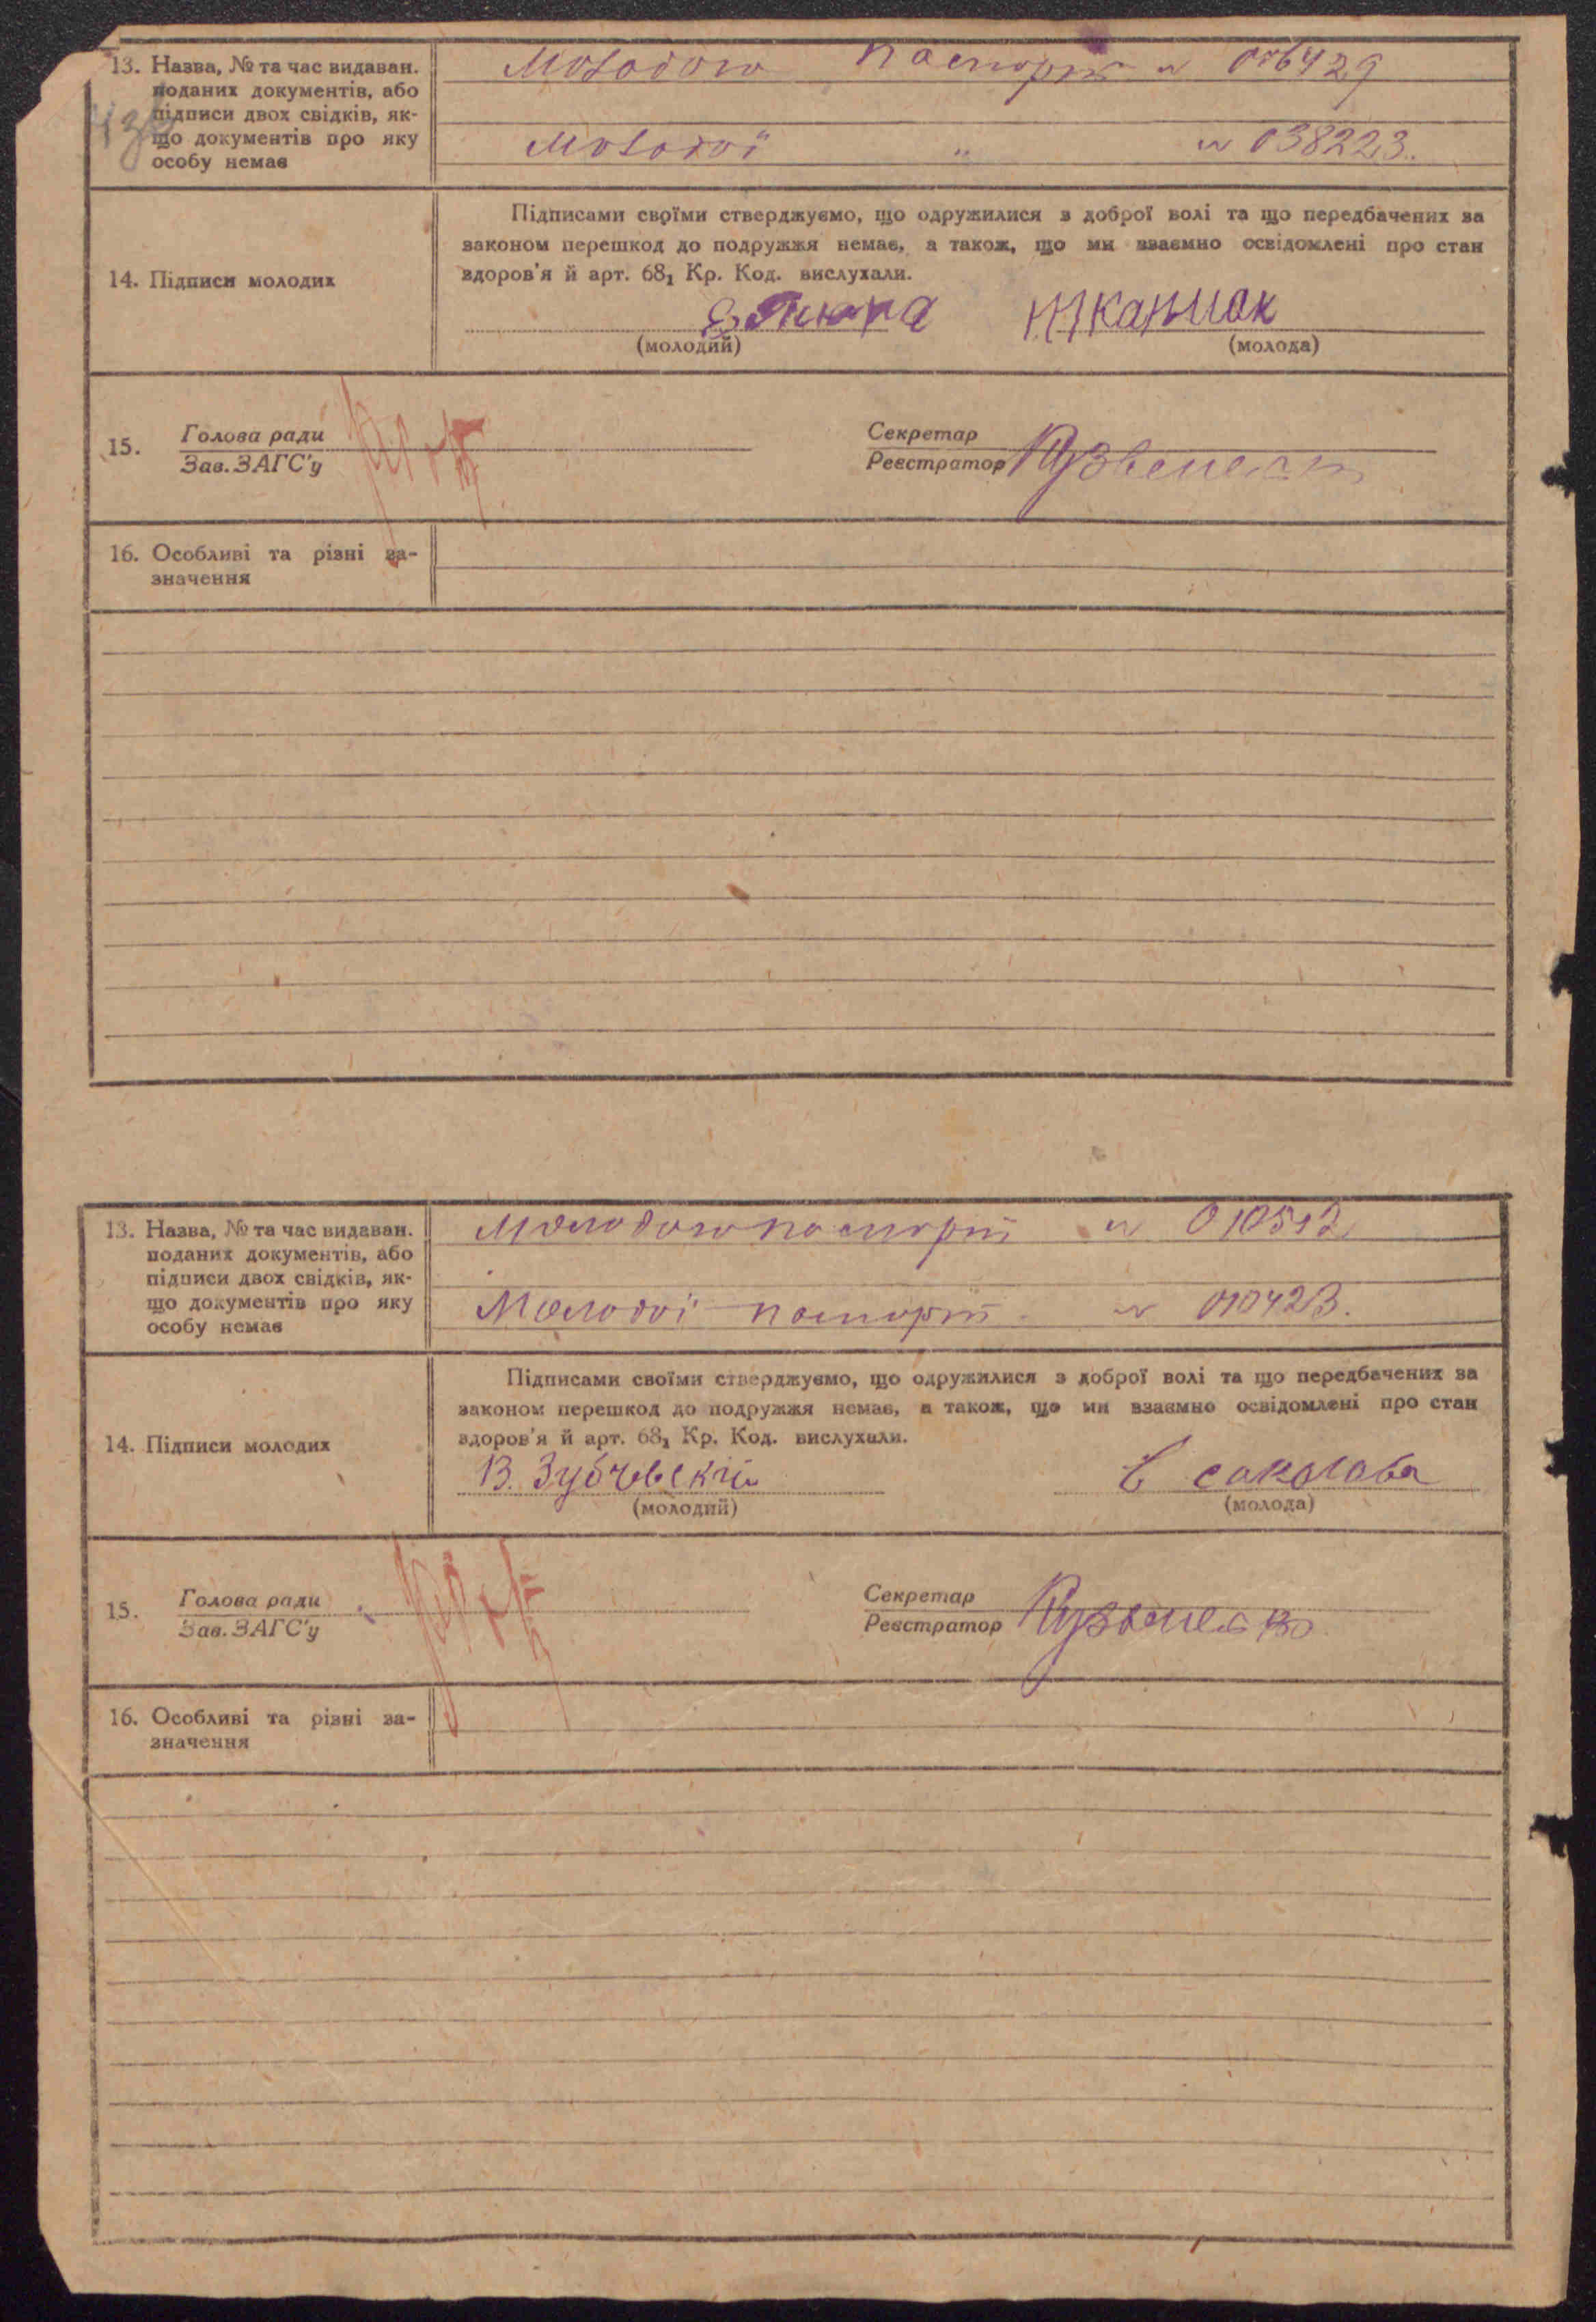 13. Назва, № та час видаван. поданих документів, або підписи двох свідків, як-
що документів про яку особу немає
Молодого паспорт № 076429
Молодої „ № 038223.
14. Підписи молодих
Підписами своїми стверджуємо, що одружилися з доброї волі та що передбачених за
законом перешкод до подружжя немає, а також, що ми взаємно освідомлені про стан
здоров'я й арт. 68₁ Кр. Код. вислухали.
(молодий)
(молода)
15. Голова ради
Зав. ЗАГС'у
Секретар
Реєстратор
16. Особливі та різні за-
значення
13. Назва, № та час видаван.
поданих документів, або
підписи двох свідків, як-
що документів про яку
особу немає
Молодого паспорт № 010512
Молодої паспорт № 010423.
14. Підписи молодих
Підписами своїми стверджуємо, що одружилися з доброї волі та що передбачених за
законом перешкод до подружжя немає, а також, що ми взаємно освідомлені про стан
здоров'я й арт. 68₁ Кр. Код. вислухали.
В. Зубчевский
(молодий)
соколова
(молода)
15. Голова ради
Зав. ЗАГС'у
Секретар
Реєстратор
16. Особливі та різні за-
значення